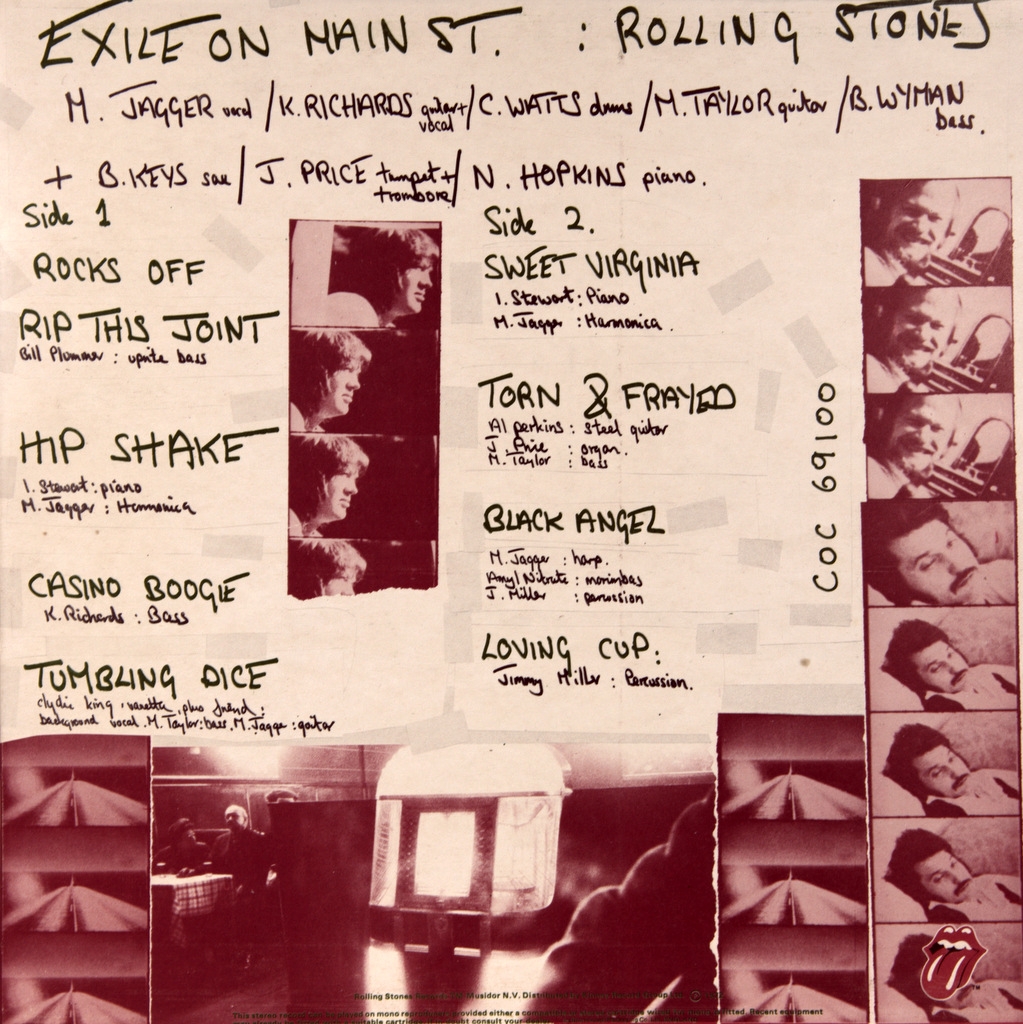 EXILE ON MAIN ST. : ROLLING STONES
M. JAGGER vocal / K. RICHARDS guitar + vocal / C. WATTS drums / M. TAYLOR guitar / B. WYMAN bass.
+ B. KEYS sax / J. PRICE trumpet + trombone / N. HOPKINS piano.
Side 1
ROCKS OFF
RIP THIS JOINT
Bill Plummer : uprite bass
HIP SHAKE
I. Stewart : piano
M. Jagger : Harmonica
CASINO BOOGIE
K. Richards : Bass
TUMBLING DICE
clydie king, vanetta, plus friend :
background vocal. M. Taylor : bass. M. Jagger : guitar
Side 2.
SWEET VIRGINIA
I. Stewart : Piano
M. Jagger : Harmonica.
TORN & FRAYED
Al perkins : steel guitar
J. Price : organ.
M. Taylor : bass
BLACK ANGEL
M. Jagger : harp.
Amyl Nitrate : marimbas
J. Miller : percussion
LOVING CUP.
Jimmy Miller : Percussion.
COC 69100
Rolling Stones Musidor N.V.
This stereo record can be played on mono provided either a Recent equipment
cartridge consult your